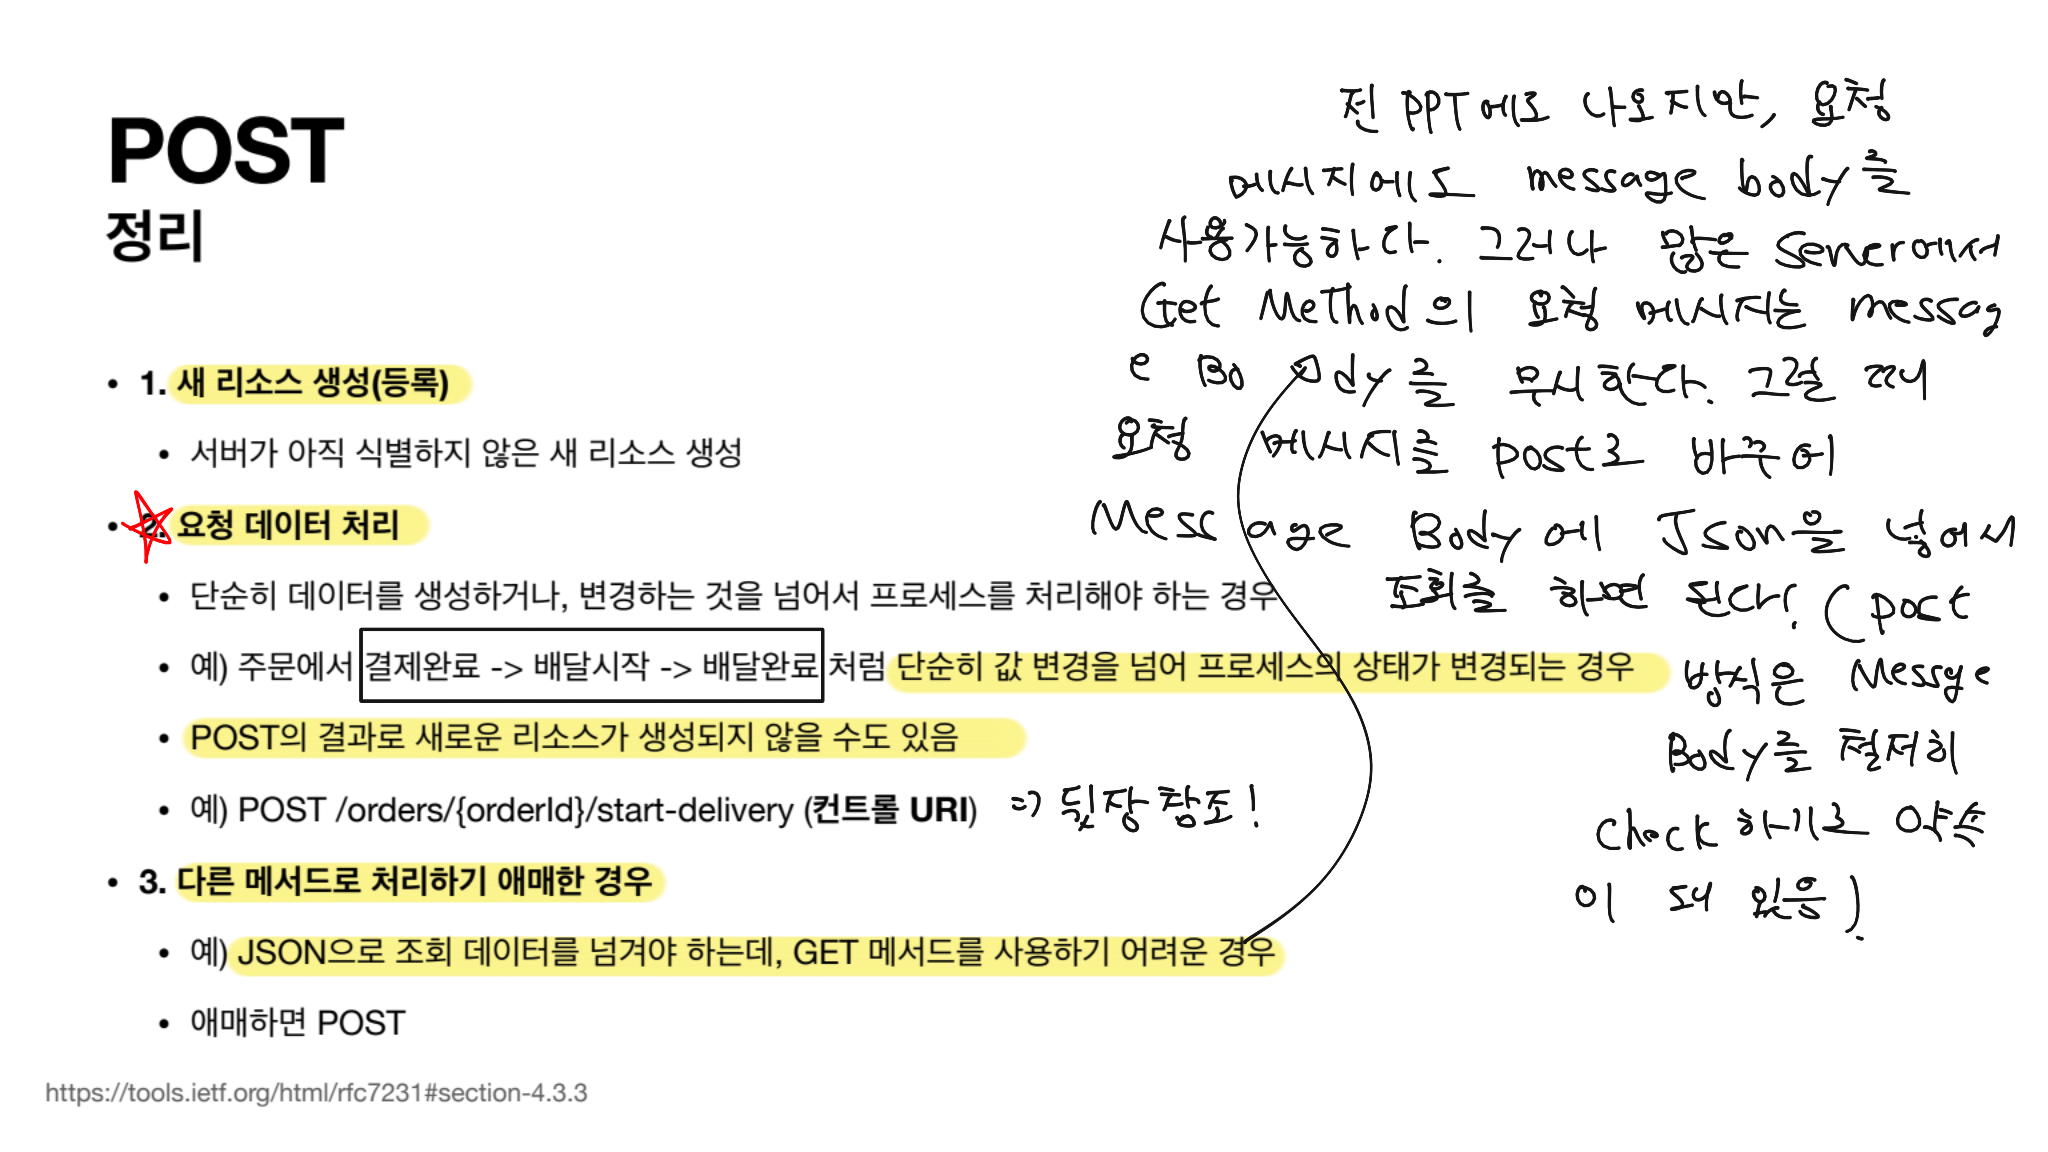 POST
정리
• 1. 새 리소스 생성(등록)
• 서버가 아직 식별하지 않은 새 리소스 생성
• 2. 요청 데이터 처리
• 단순히 데이터를 생성하거나, 변경하는 것을 넘어서 프로세스를 처리해야 하는 경우
• 예) 주문에서 결제완료 -> 배달시작 -> 배달완료 처럼 단순히 값 변경을 넘어 프로세스의 상태가 변경되는 경우
• POST의 결과로 새로운 리소스가 생성되지 않을 수도 있음
• 예) POST /orders/{orderId}/start-delivery (컨트롤 URI) => 뒷장 참조!
• 3. 다른 메서드로 처리하기 애매한 경우
• 예) JSON으로 조회 데이터를 넘겨야 하는데, GET 메서드를 사용하기 어려운 경우
• 애매하면 POST
https://tools.ietf.org/html/rfc7231#section-4.3.3
전 PPT에도 나오지만, 요청
메시지에도 message body를
사용가능하다. 그러나 많은 Server에서
Get Method의 요청 메시지는 messag
e Bo ody를 무시한다. 그럴 때
요청 메시지를 post로 바꾸어
Mess age Body에 Json을 넣어서
조회를 하면 된다! (post
방식은 Messge
Body를 철저히
Check하기로 약속
이 돼 있음).